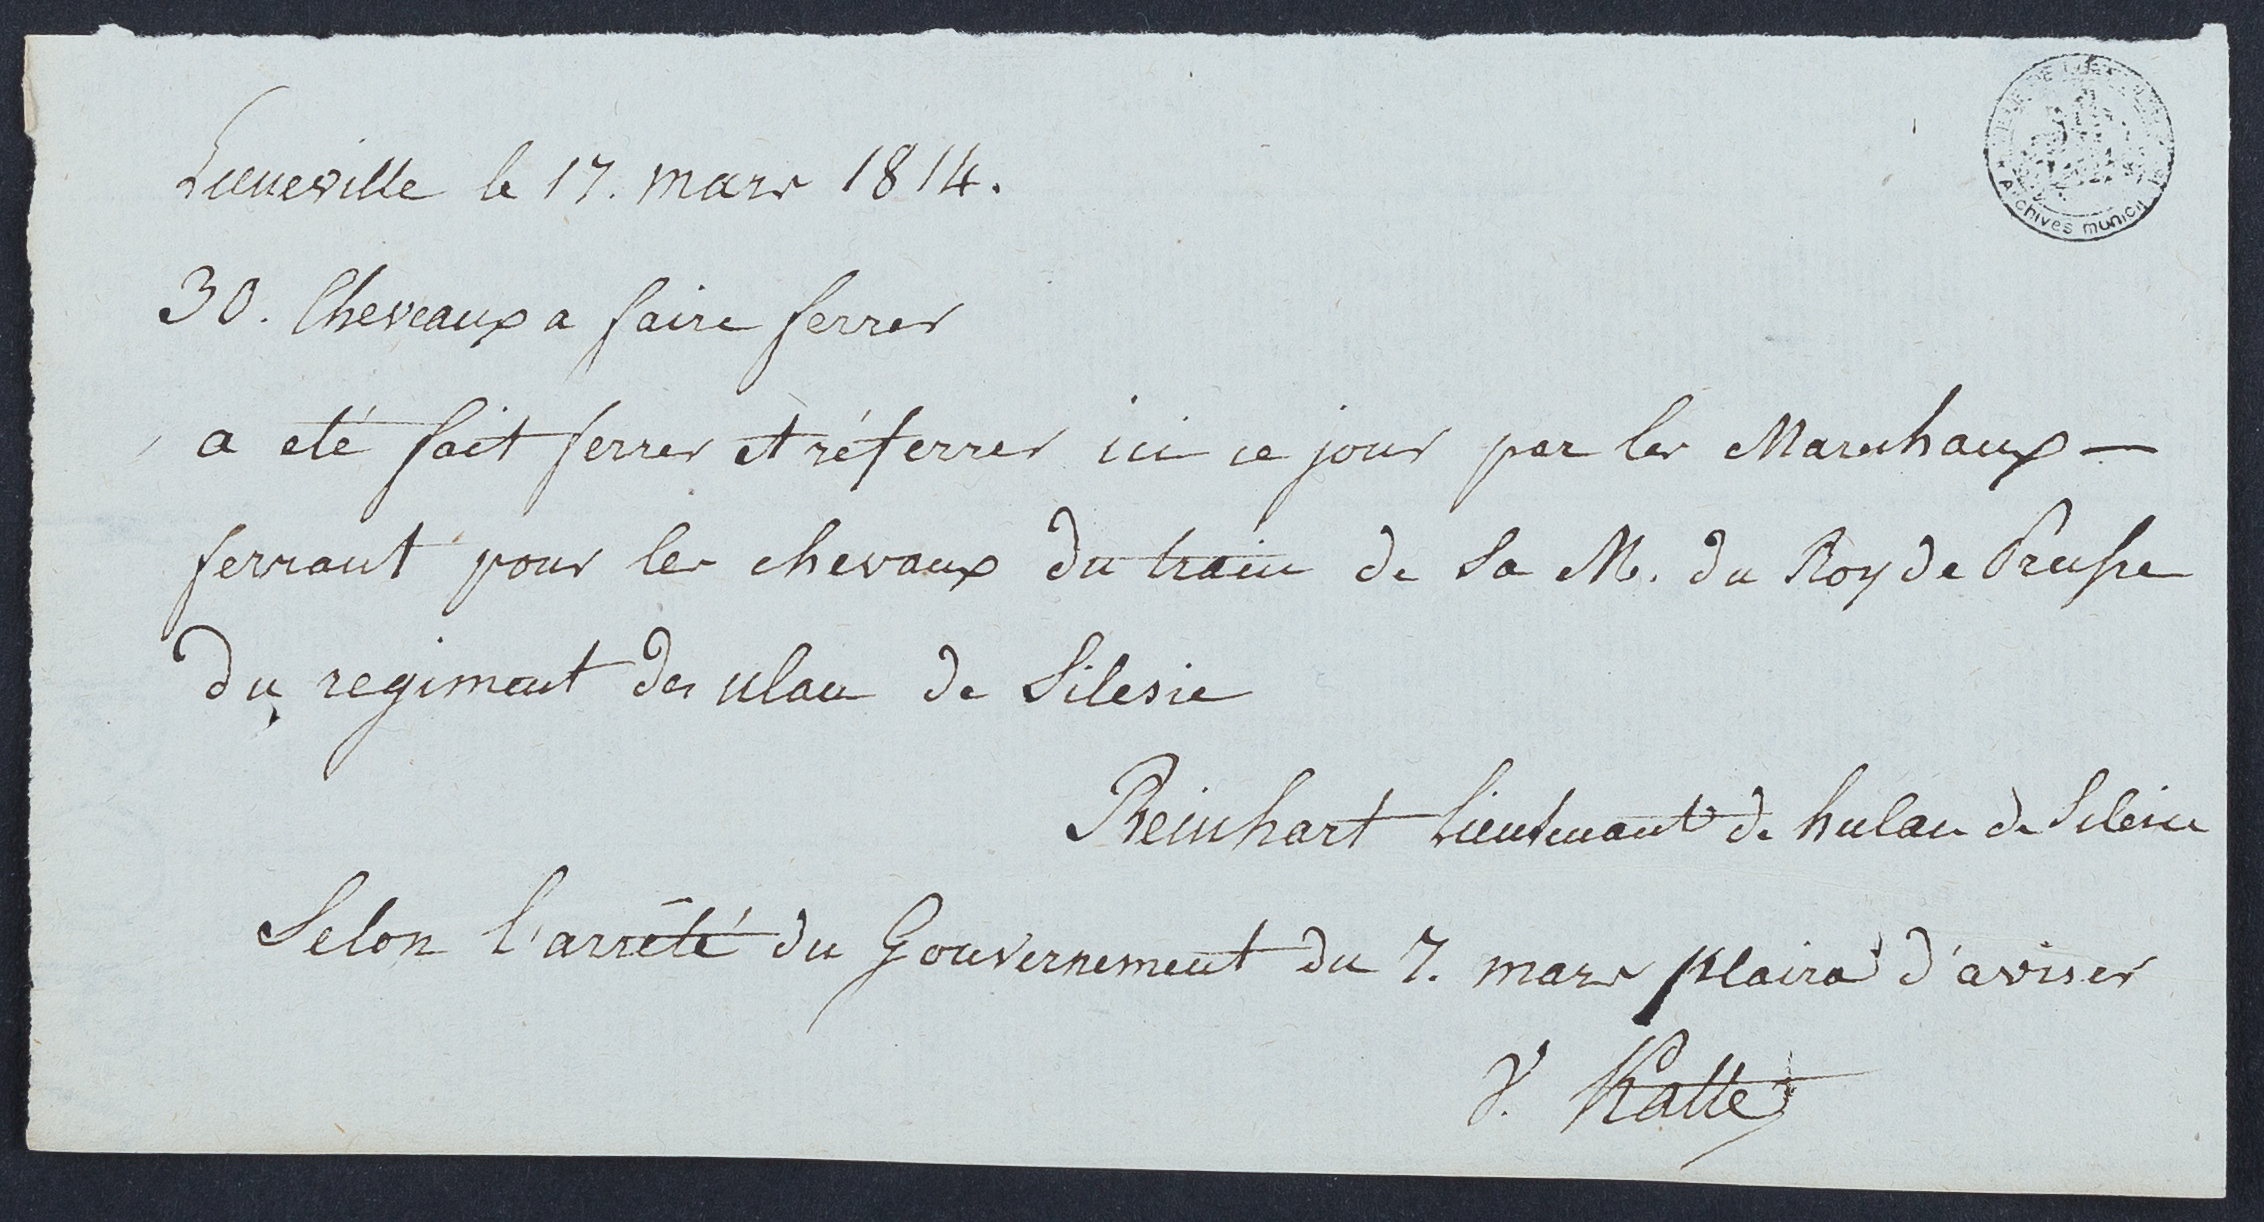 Luneville le 17. mars 1814.
30. Cheveaux a faire ferrer
a eté fait ferrer et réferrer ici ce jour par les Marechaux —
ferrant pour les chevaux du train de Sa M. du Roy de Prusse
du regiment des ulan de Silesie
Reinhart Lieutenant de hulan de Silesie
Selon l'arrêté du Gouvernement du 7. mars plaira d'aviser
v. Katte
Archives munici